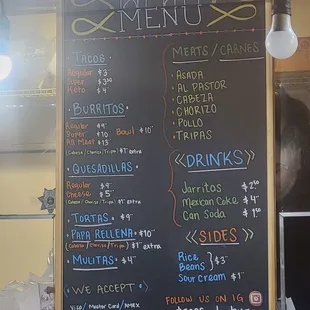 MENU
TACOS
Regular $3
Super $3.50
Keto $4
BURRITOS
Regular $9
Super $10
All Meat $13
Bowl $10
(Cabeza/Chorizo/Tripa) $1 extra
QUESADILLAS
Regular $9
Cheese $5
(Cabeza/Chorizo/Tripa) $1 extra
TORTAS $9
PAPA RELLENA $10
(Cabeza/Chorizo/Tripa) $1 extra
MULITAS $4
WE ACCEPT
Visa/Master Card/AMEX
MEATS / CARNES
ASADA
AL PASTOR
CABEZA
CHORIZO
POLLO
TRIPAS
DRINKS
Jarritos $2.50
Mexican Coke $4
Can Soda $1.50
SIDES
Rice
Beans
$3
Sour cream $1
FOLLOW US ON IG